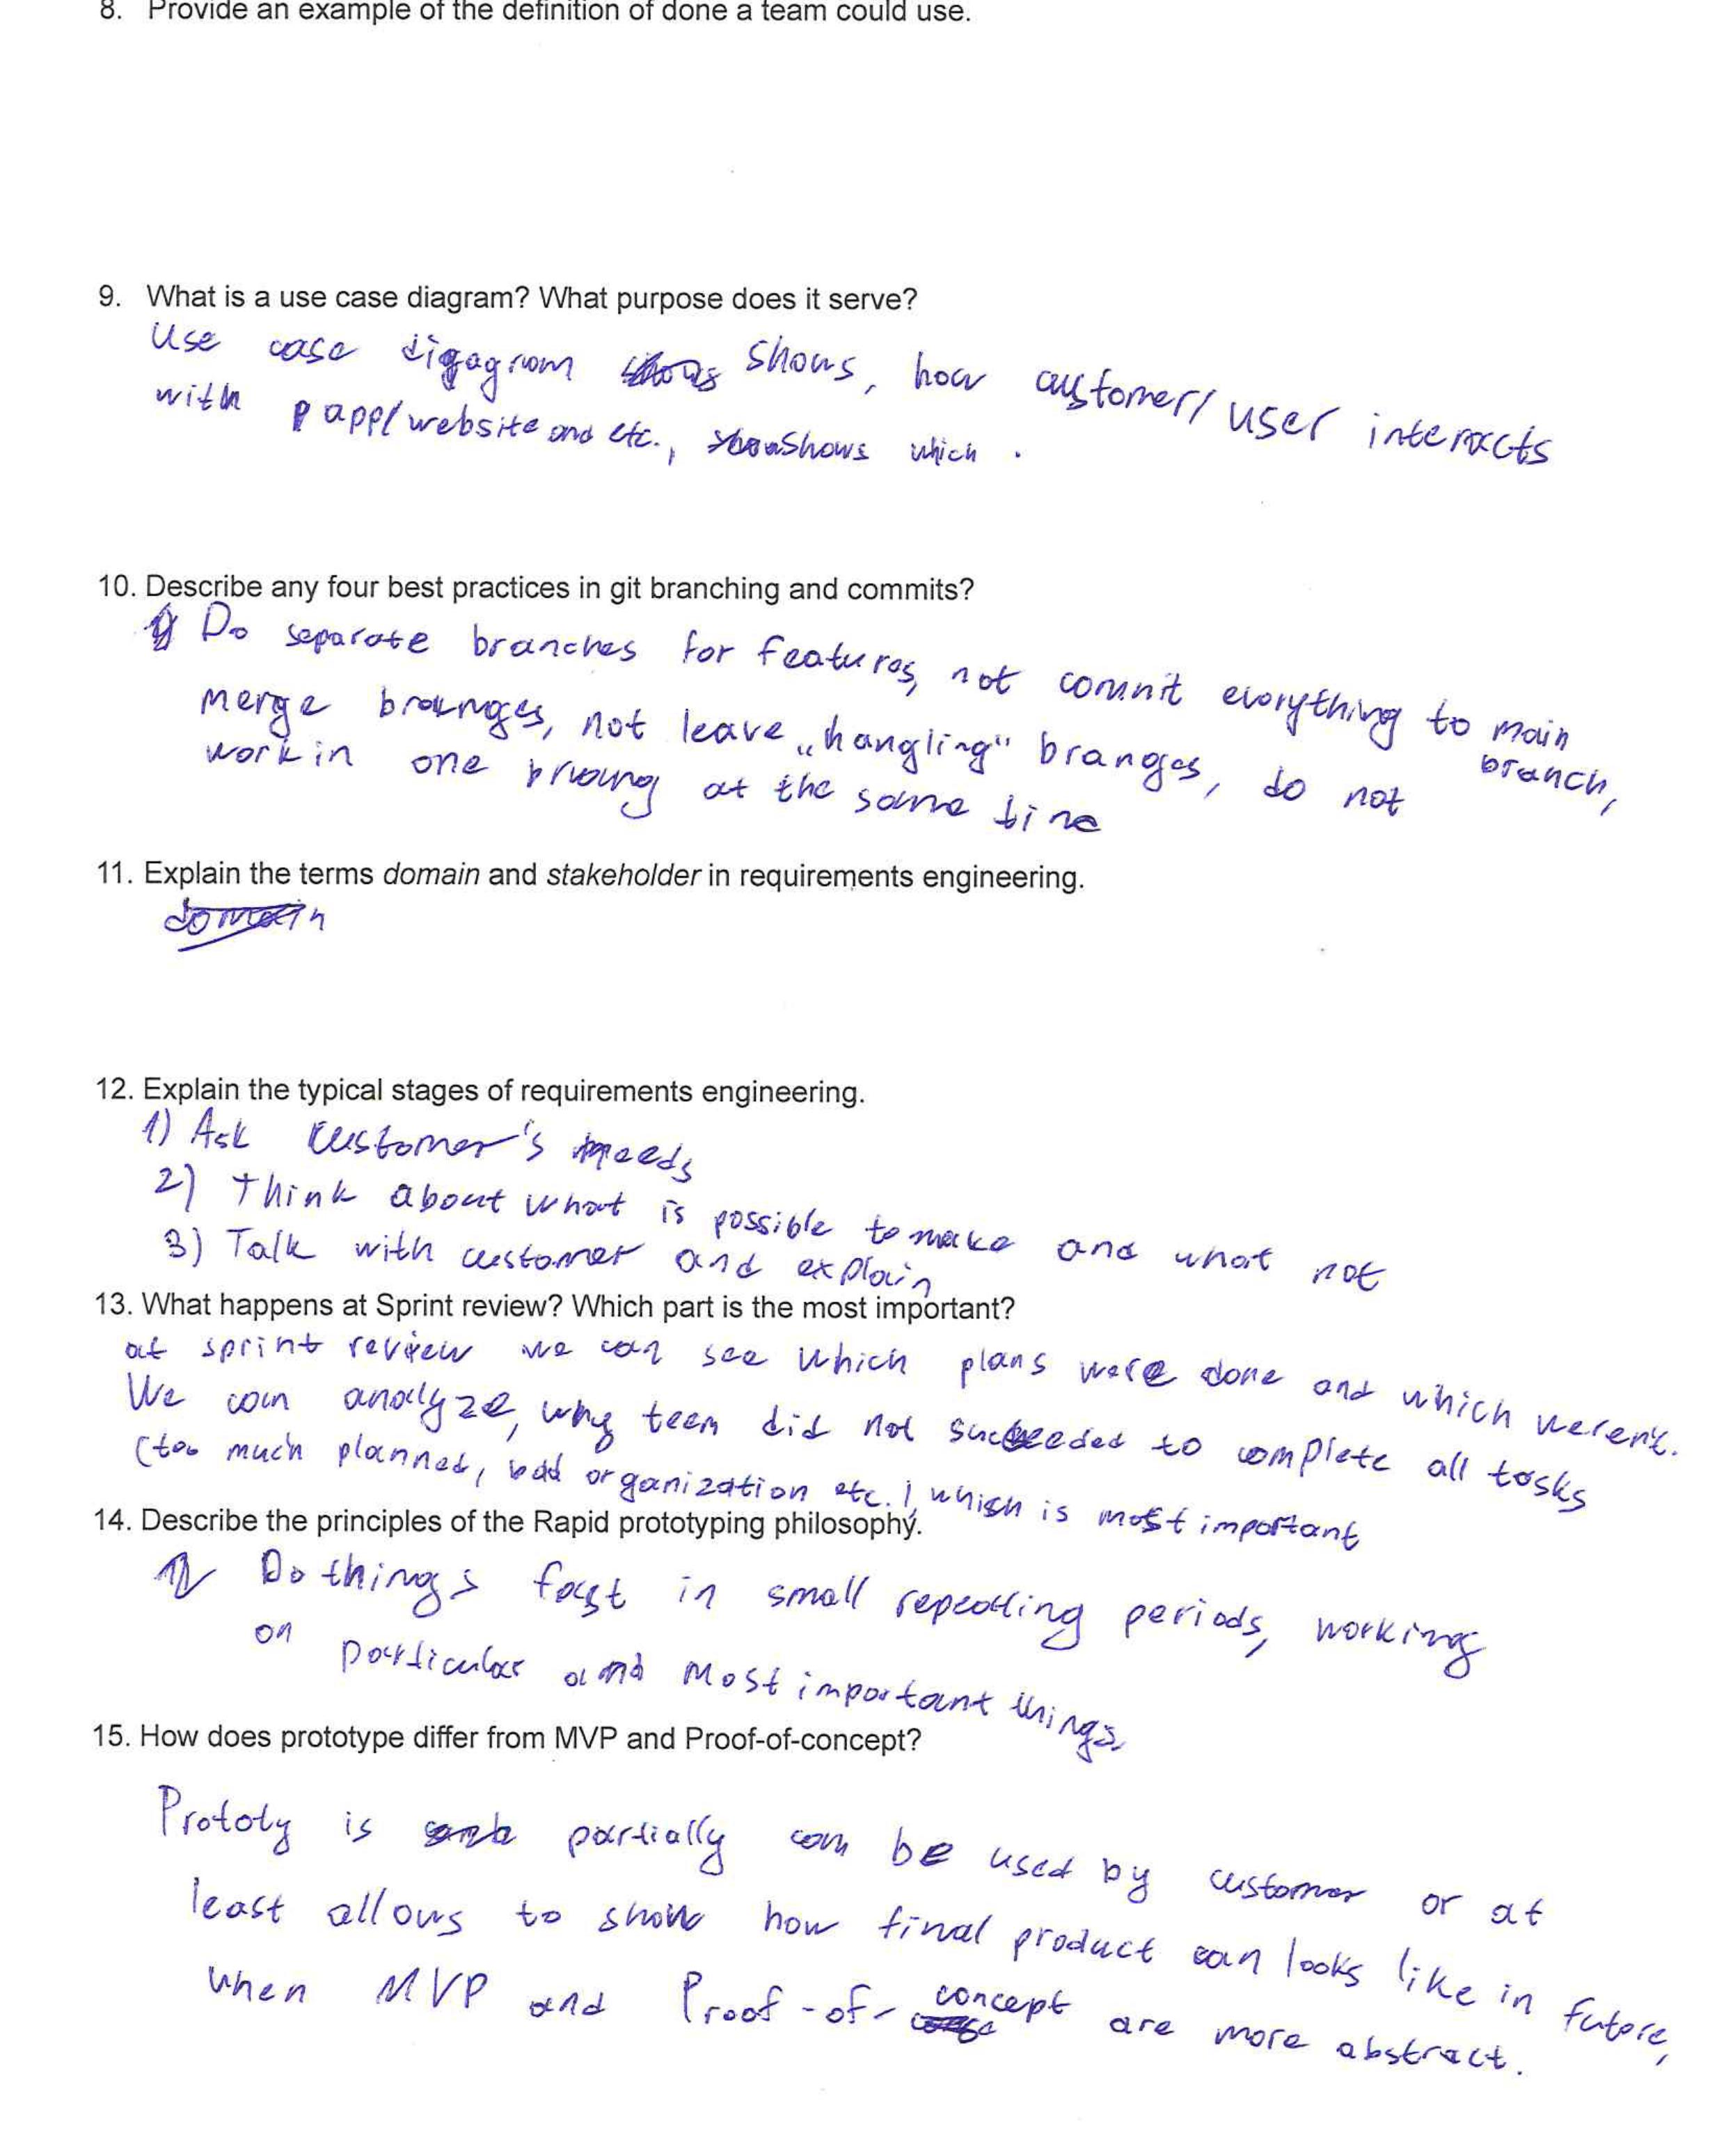 8. Provide an example of the definition of done a team could use.
9. What is a use case diagram? What purpose does it serve?
Use case digagram shows, how customer/user interacts
with app/website and etc., shows which .
10. Describe any four best practices in git branching and commits?
Do separate branches for features, not commit everything to main
branch,
merge brannges, not leave „hangling" branges, do not
work in one at the same time
11. Explain the terms domain and stakeholder in requirements engineering.
domain
12. Explain the typical stages of requirements engineering.
1) Ask customer's needs
2) Think about what is possible to make and what not
3) Talk with customer and explain
13. What happens at Sprint review? Which part is the most important?
at sprint review we can see which plans were done and which weren't.
We can analyze, why teem did not succeeded to complete all tosks
(too much planned, bad organization etc.), which is most important
14. Describe the principles of the Rapid prototyping philosophy.
Do things fast in small repeating periods, working
on particular and most important things
15. How does prototype differ from MVP and Proof-of-concept?
Prototy is partially can be used by customer or at
least allows to show how final product can looks like in future,
when MVP and Proof-of-concept are more abstract.